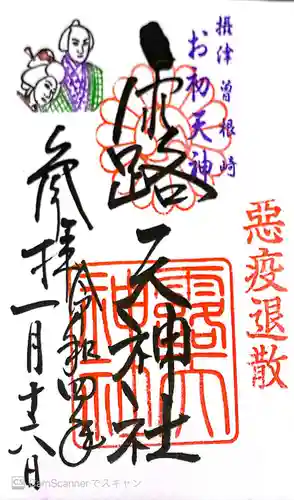 摂津 曽根崎
お初天神
露天神社
悪疫退散
露天
神社
参拝
令和四年
一月
CamScannerでスキャン